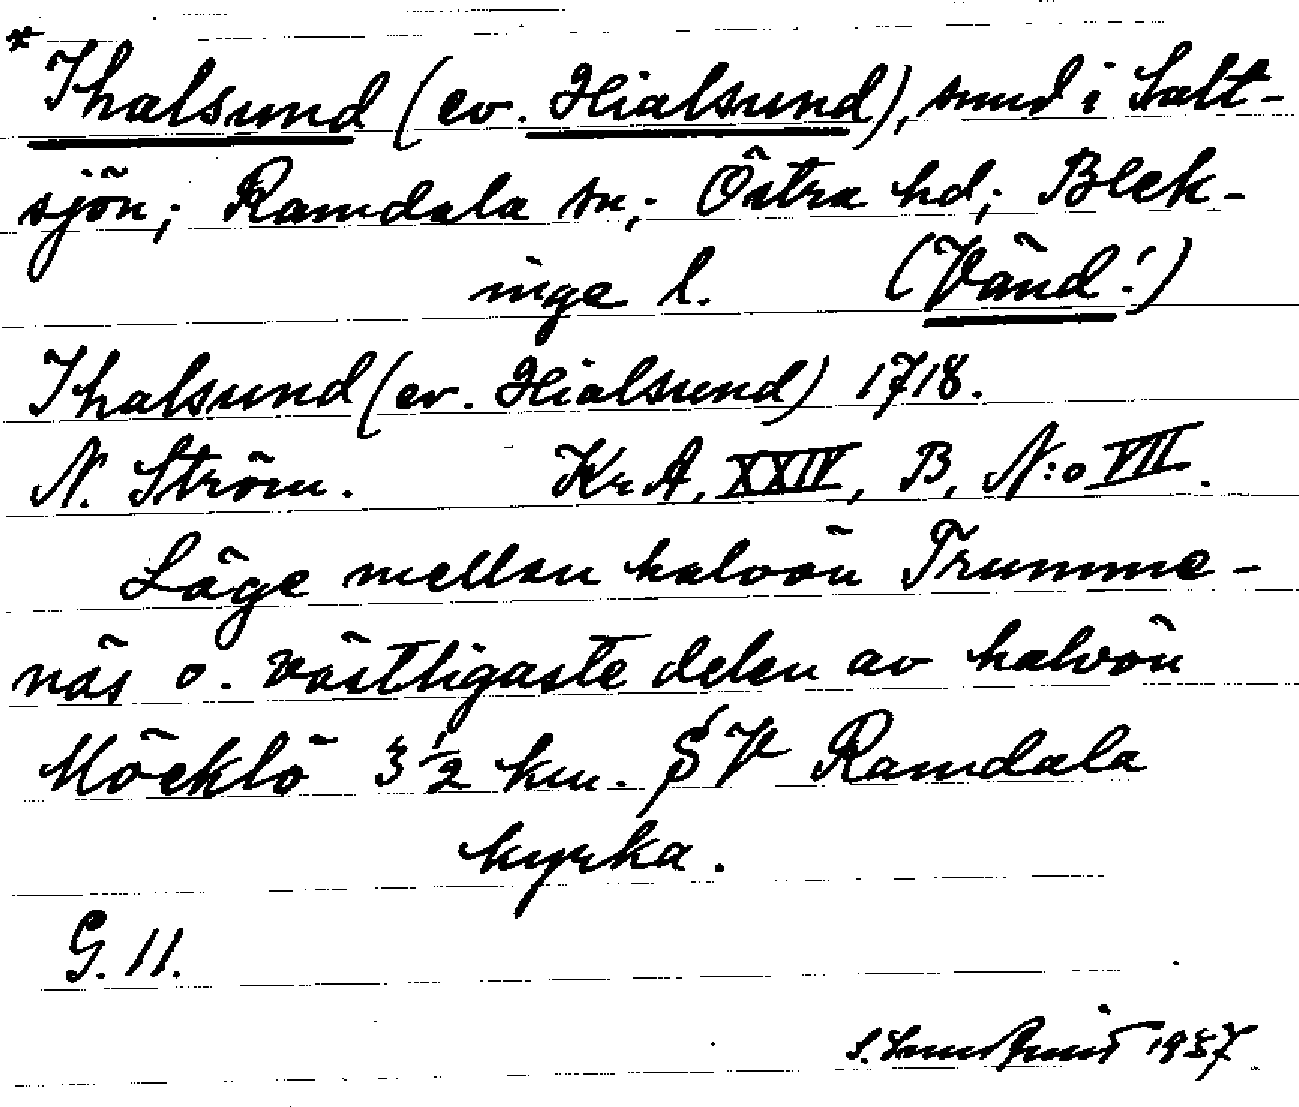 * Ihalsund (ev. Hialsund), sund i Salt-
sjön; Ramdala sn; Östra hd; Blek-
inge l. (Vänd!)
Ihalsund (ev. Hialsund) 1718.
N. Ström. KrA, XXIV, B, N:o VII.
Läge mellan halvön Trumme-
näs o. västligaste delen av halvön
Möcklö 3 1/2 km. SV Ramdala
kyrka.
G. 11.
1957